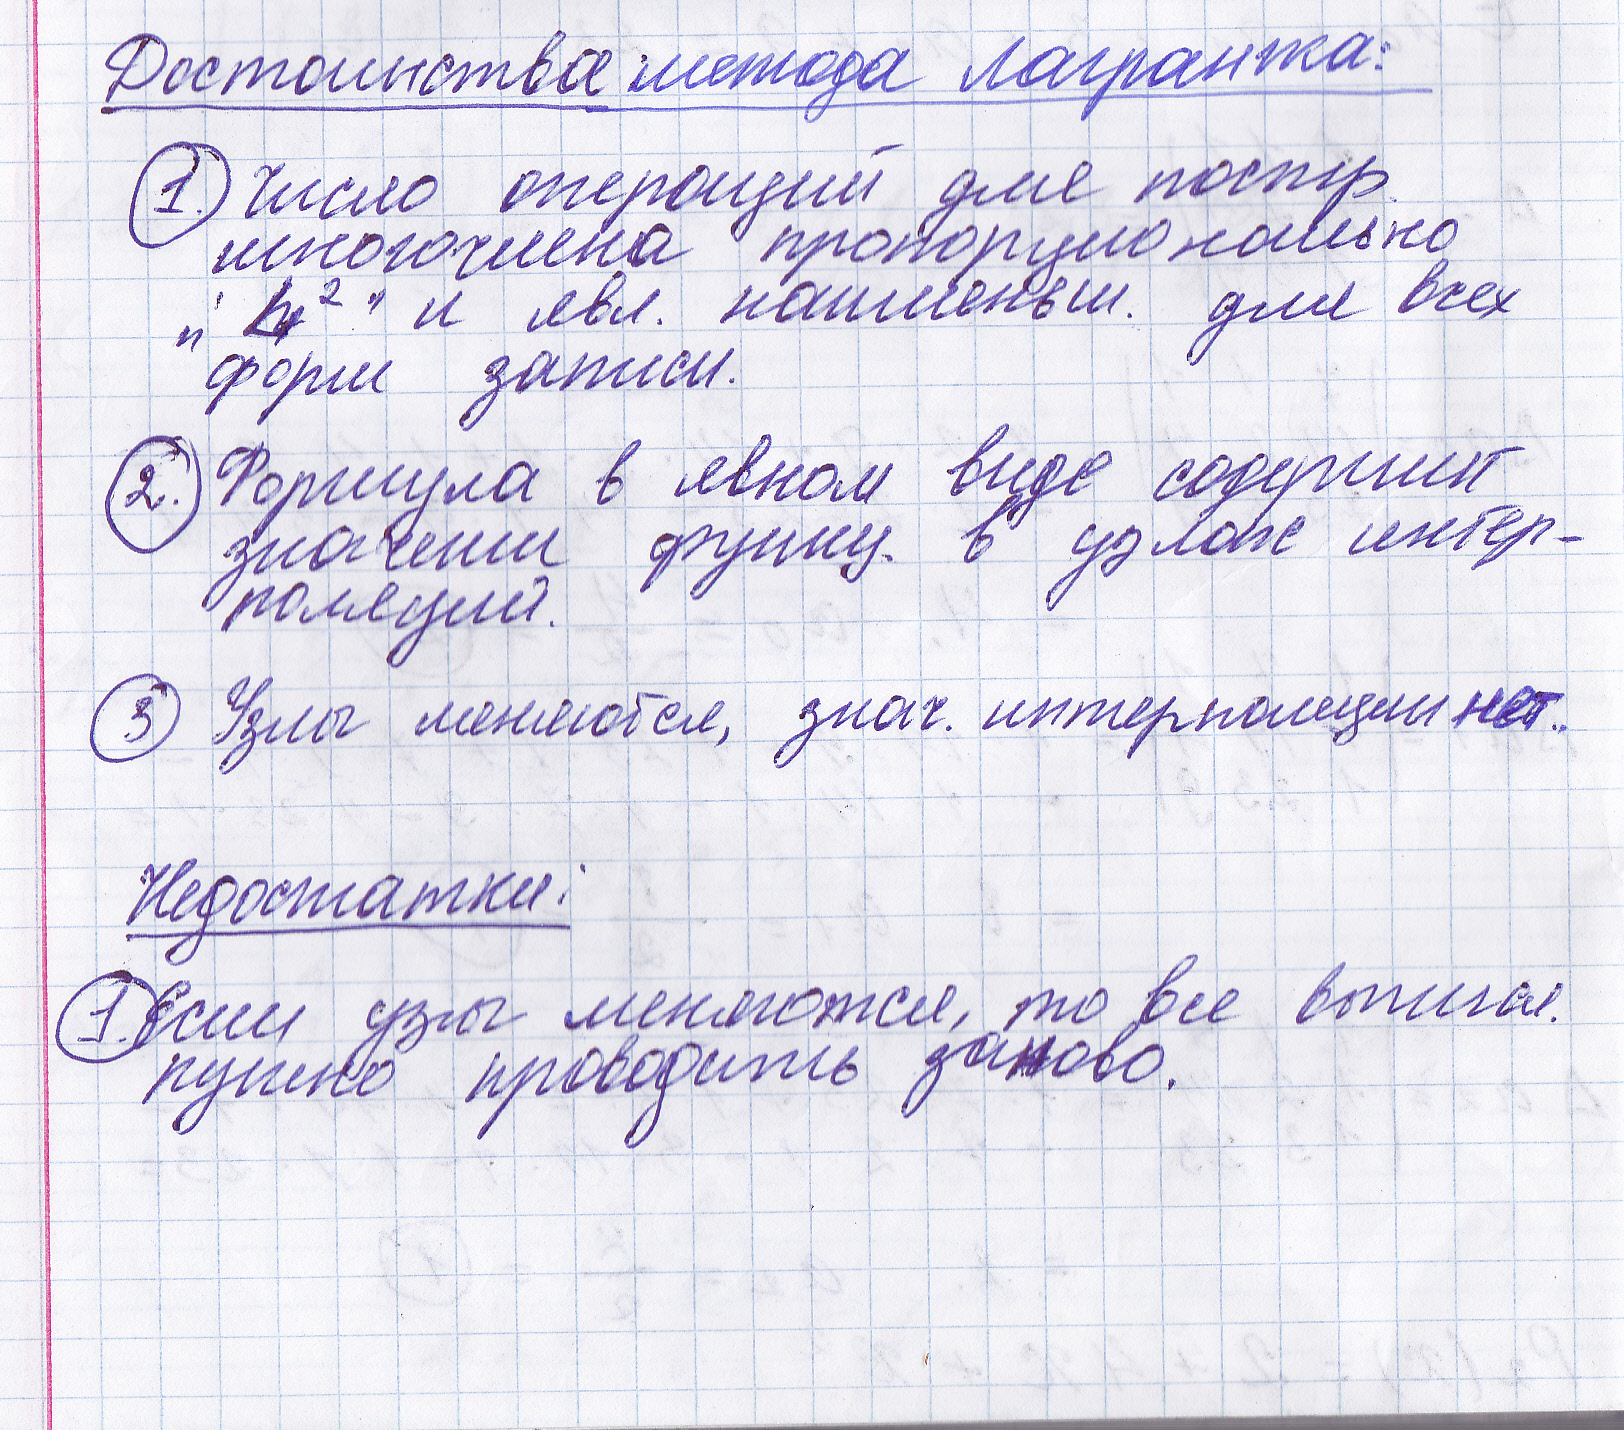 Достоинства метода Лагранжа:
1. Число операций для постр.
многочлена пропорционально
"n²" и явл. наименьш. для всех
форм записи.
2. Формула в явном виде содержит
значении функц. в узлах интер-
поляций.
3 Узлы меняются, знач. интерполяции нет.
Недостатки:
1. Если узлы меняются, то все вычисл.
нужно проводить заново.